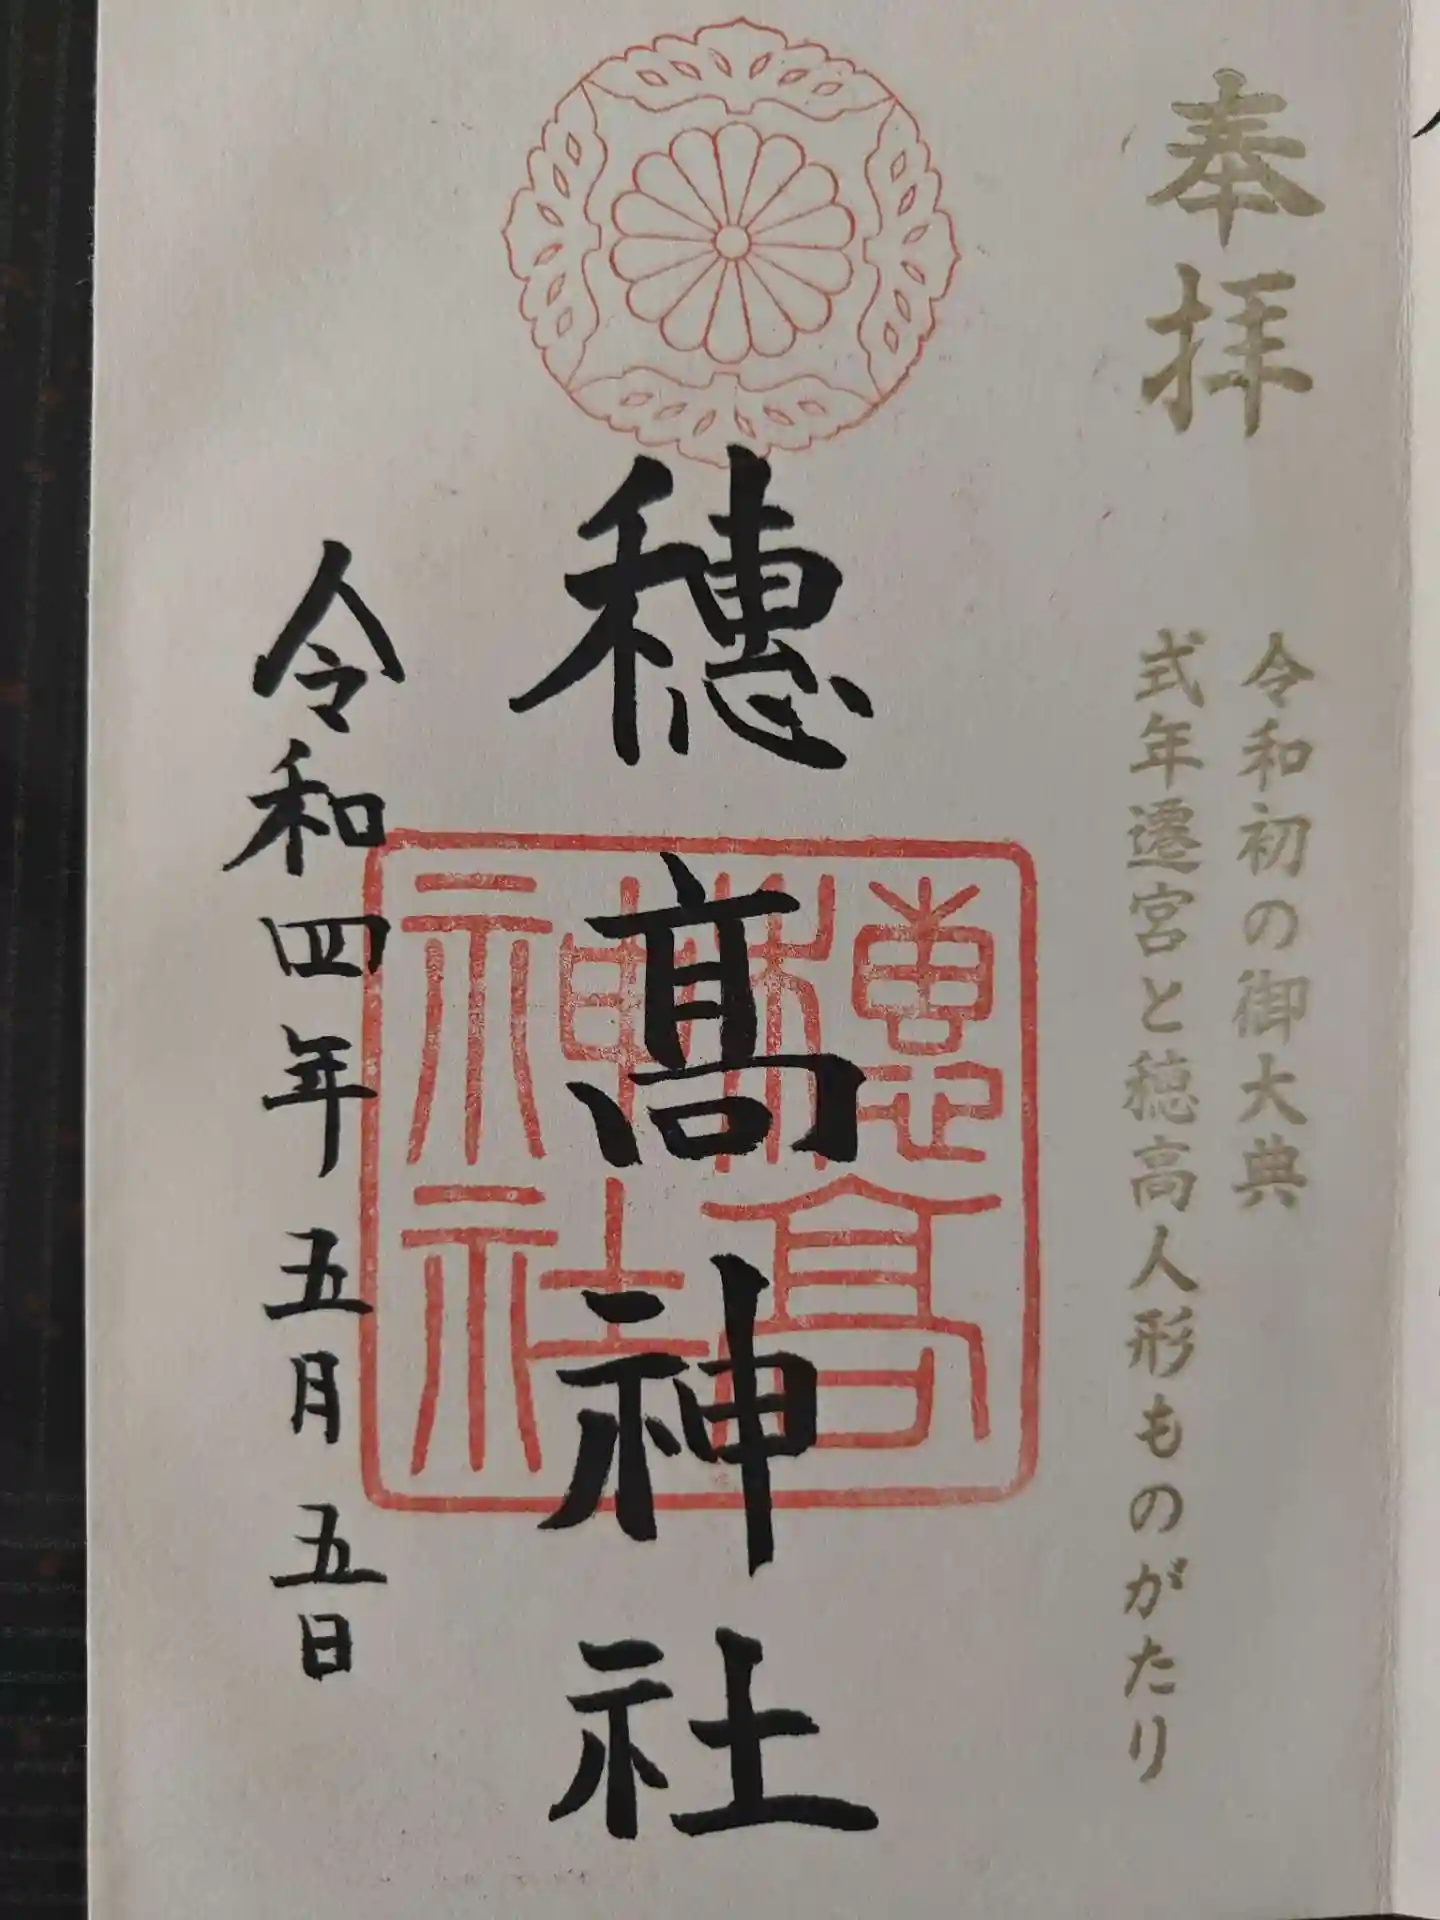 奉拝
令和初の御大典
式年遷宮と穂高人形ものがたり
穗髙神社
穗髙
神社
令和四年五月五日